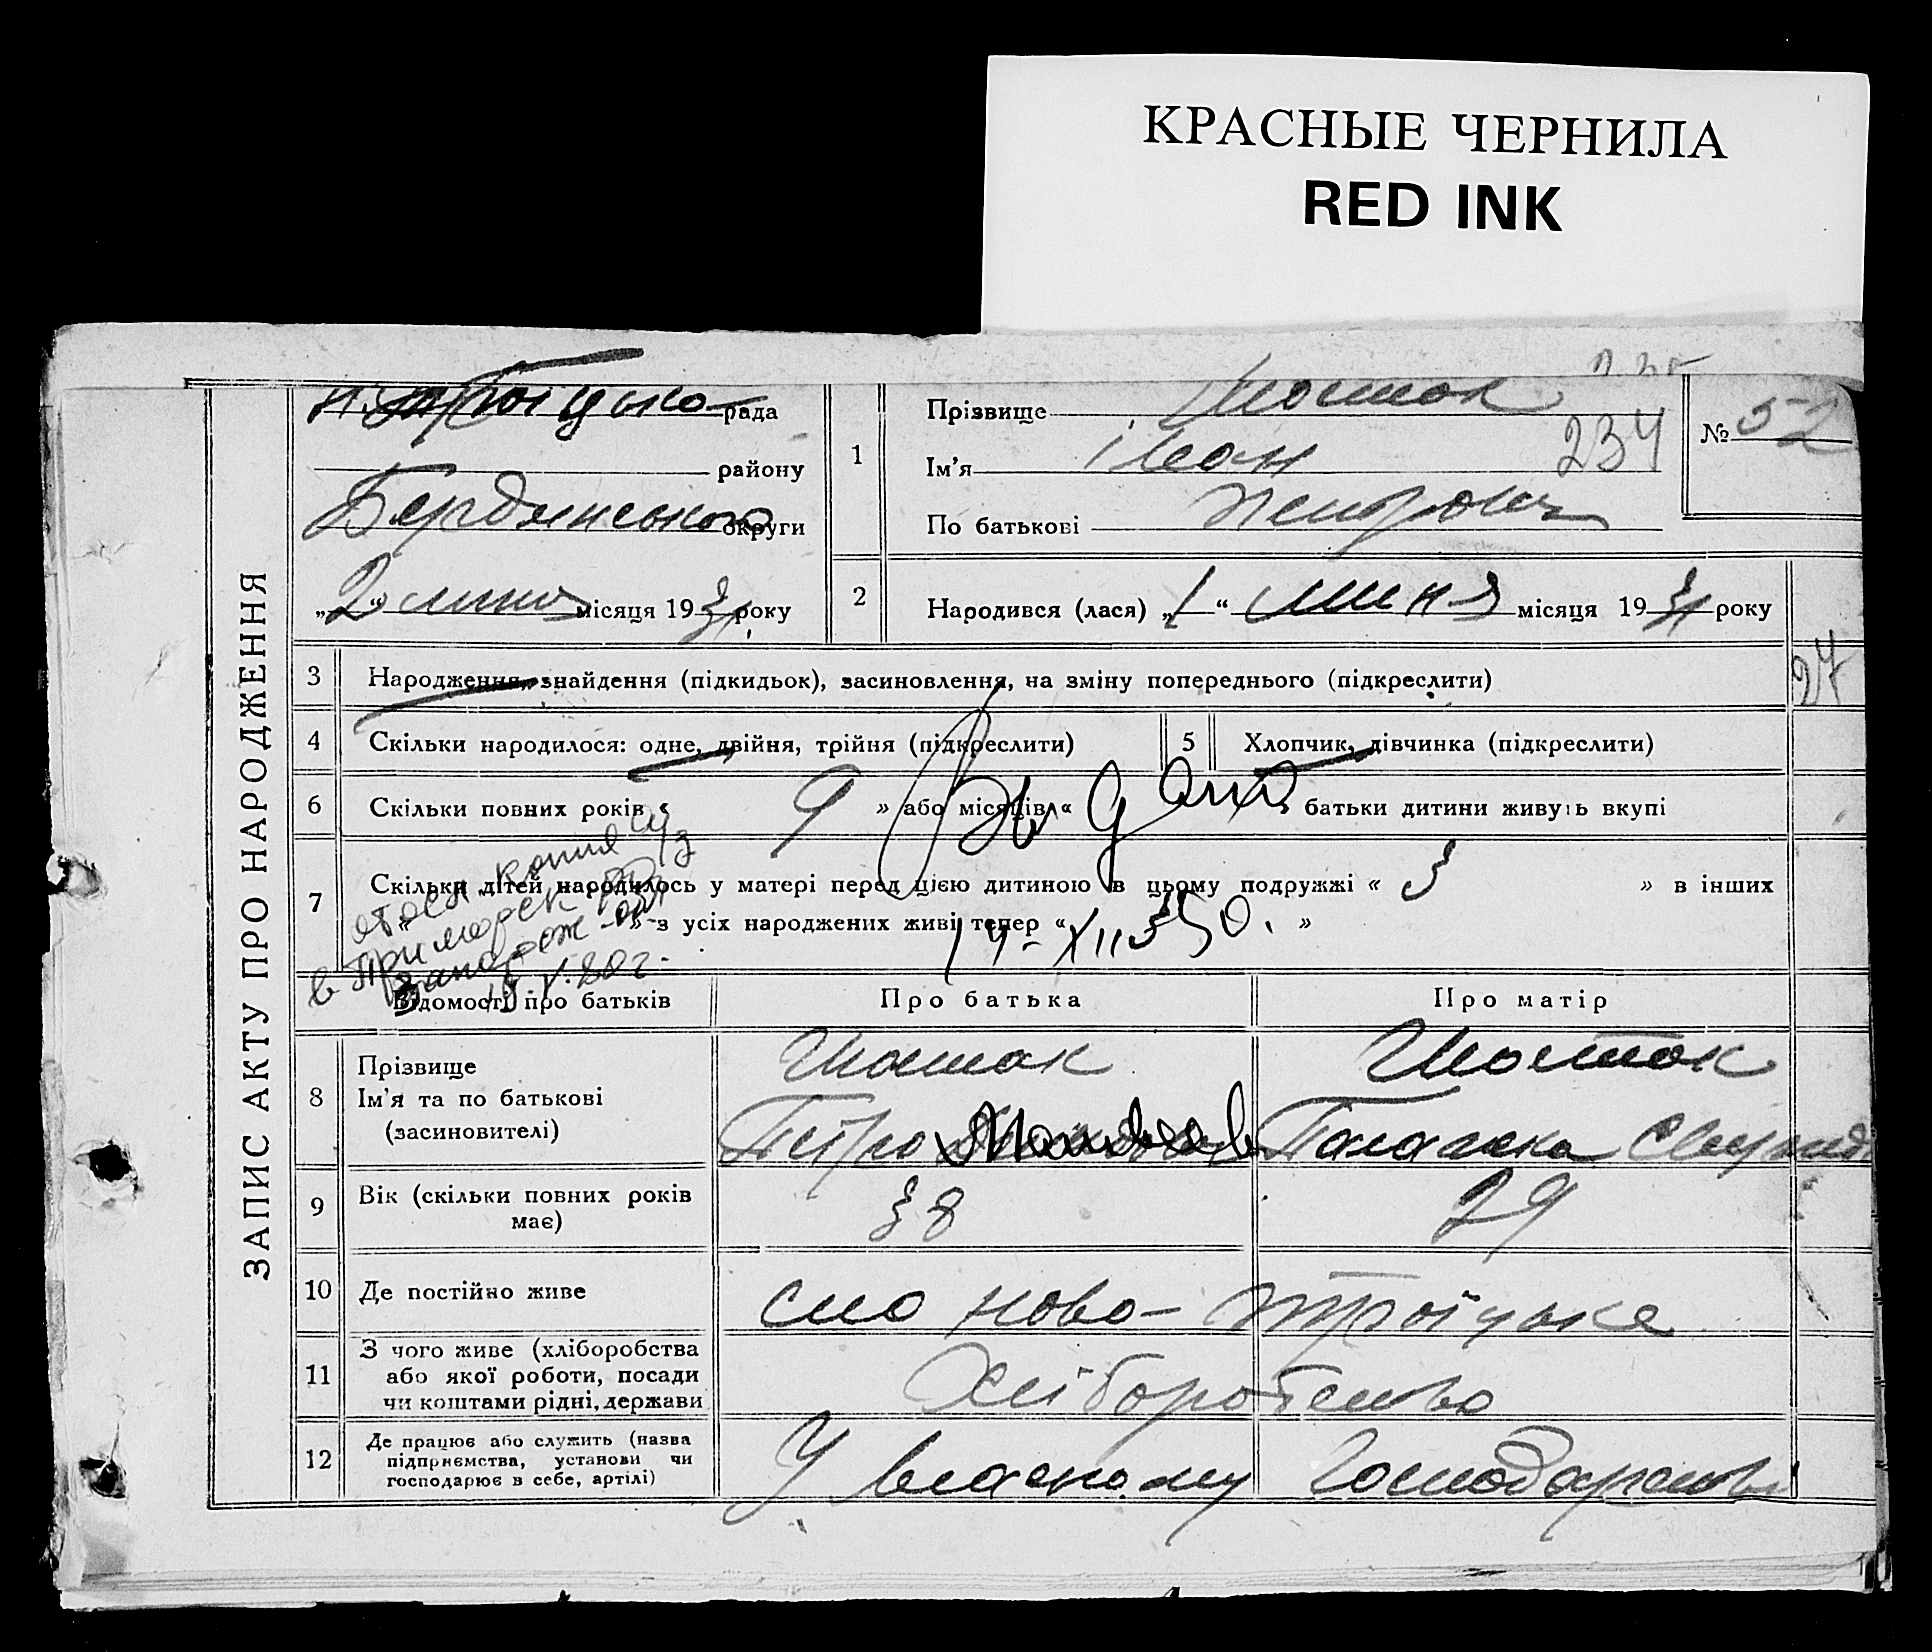 КРАСНЫЕ ЧЕРНИЛА
RED INK
ЗАПИС АКТУ ПРО НАРОДЖЕННЯ
рада
району
Бердянського округи
„2“ місяця 1931 року
1
Прізвище Шостак
Ім'я Іван
234
По батькові Петрович
№ 52
2
Народився (лася) „1“ липня місяця 1931 року
27
3 Народження, знайдення (підкидьок), засиновлення, на зміну попереднього (підкреслити)
4 Скільки народилося: одне, двійня, трійня (підкреслити)
5 Хлопчик, дівчинка (підкреслити)
6 Скільки повних років « 9 » або місяців « » батьки дитини живуть вкупі
7 Скільки дітей народилось у матері перед цією дитиною в цьому подружжі « 3 » в інших
« » з усіх народжених живі тепер « 3 »
14-XII 50.
копия
в Приморск
15.V.80г.
Відомості про батьків
Про батька
Про матір
8 Прізвище
Ім'я та по батькові
(засновителі)
Шостак
Петро
Шостак
Палажка
9 Вік (скільки повних років має)
38
29
10 Де постійно живе
село Ново-Троїцьке
11 З чого живе (хліборобства або якої роботи, посади чи коштами рідні, держави
Хліборобство
12 Де працює або служить (назва підприємства, установи чи господарює в себе, артілі)
У власному господарстві